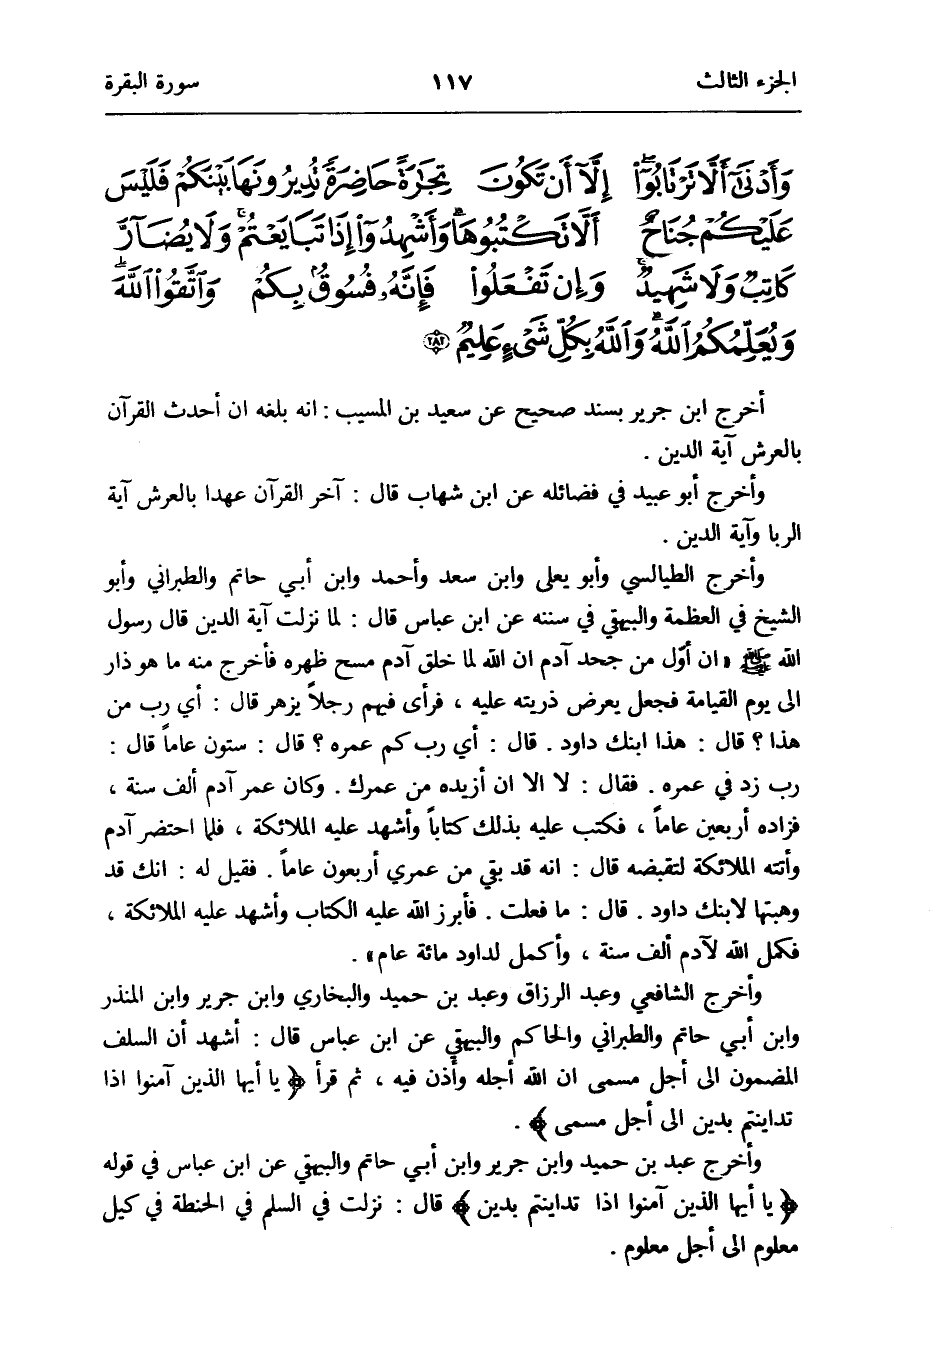 الجزء الثالث ١١٧ سورة البقرة
وَأَدْنَىٰٓ أَلَّا تَرْتَابُوٓا۟ ۖ إِلَّآ أَن تَكُونَ تِجَـٰرَةً حَاضِرَةً تُدِيرُونَهَا بَيْنَكُمْ فَلَيْسَ
عَلَيْكُمْ جُنَاحٌ أَلَّا تَكْتُبُوهَا ۗ وَأَشْهِدُوٓا۟ إِذَا تَبَايَعْتُمْ ۚ وَلَا يُضَآرَّ
كَاتِبٌ وَلَا شَهِيدٌ ۚ وَإِن تَفْعَلُوا۟ فَإِنَّهُۥ فُسُوقٌۢ بِكُمْ ۗ وَٱتَّقُوا۟ ٱللَّهَ ۖ
وَيُعَلِّمُكُمُ ٱللَّهُ ۗ وَٱللَّهُ بِكُلِّ شَىْءٍ عَلِيمٌ ﴿٢٨٢﴾
أخرج ابن جرير بسند صحيح عن سعيد بن المسيب : انه بلغه ان أحدث القرآن
بالعرش آية الدين .
وأخرج أبو عبيد في فضائله عن ابن شهاب قال : آخر القرآن عهدا بالعرش آية
الربا وآية الدين .
وأخرج الطيالسي وأبو يعلى وابن سعد وأحمد وابن أبـي حاتم والطبراني وأبو
الشيخ في العظمة والبيهقي في سننه عن ابن عباس قال : لما نزلت آية الدين قال رسول
الله ﷺ «ان أوّل من جحد آدم ان الله لما خلق آدم مسح ظهره فأخرج منه ما هو ذار
الى يوم القيامة فجعل يعرض ذريته عليه ، فرأى فيهم رجلاً يزهر قال : أي رب من
هذا ؟ قال : هذا ابنك داود . قال : أي رب كم عمره ؟ قال : ستون عاماً قال :
رب زد في عمره . فقال : لا الا ان أزيده من عمرك . وكان عمر آدم ألف سنة ،
فزاده أربعين عاماً ، فكتب عليه بذلك كتاباً وأشهد عليه الملائكة ، فلما احتضر آدم
وأتته الملائكة لتقبضه قال : انه قد بقي من عمري أربعون عاماً . فقيل له : انك قد
وهبتها لابنك داود . قال : ما فعلت . فأبرز الله عليه الكتاب وأشهد عليه الملائكة ،
فكمل الله لآدم ألف سنة ، وأكمل لداود مائة عام» .
وأخرج الشافعي وعبد الرزاق وعبد بن حميد والبخاري وابن جرير وابن المنذر
وابن أبـي حاتم والطبراني والحاكم والبيهقي عن ابن عباس قال : أشهد أن السلف
المضمون الى أجل مسمى ان الله أجله وأذن فيه ، ثم قرأ ﴿ يا أيها الذين آمنوا اذا
تداينتم بدين الى أجل مسمى ﴾ .
وأخرج عبد بن حميد وابن جرير وابن أبـي حاتم والبيهقي عن ابن عباس في قوله
﴿ يا أيها الذين آمنوا اذا تداينتم بدين ﴾ قال : نزلت في السلم في الحنطة في كيل
معلوم الى أجل معلوم .